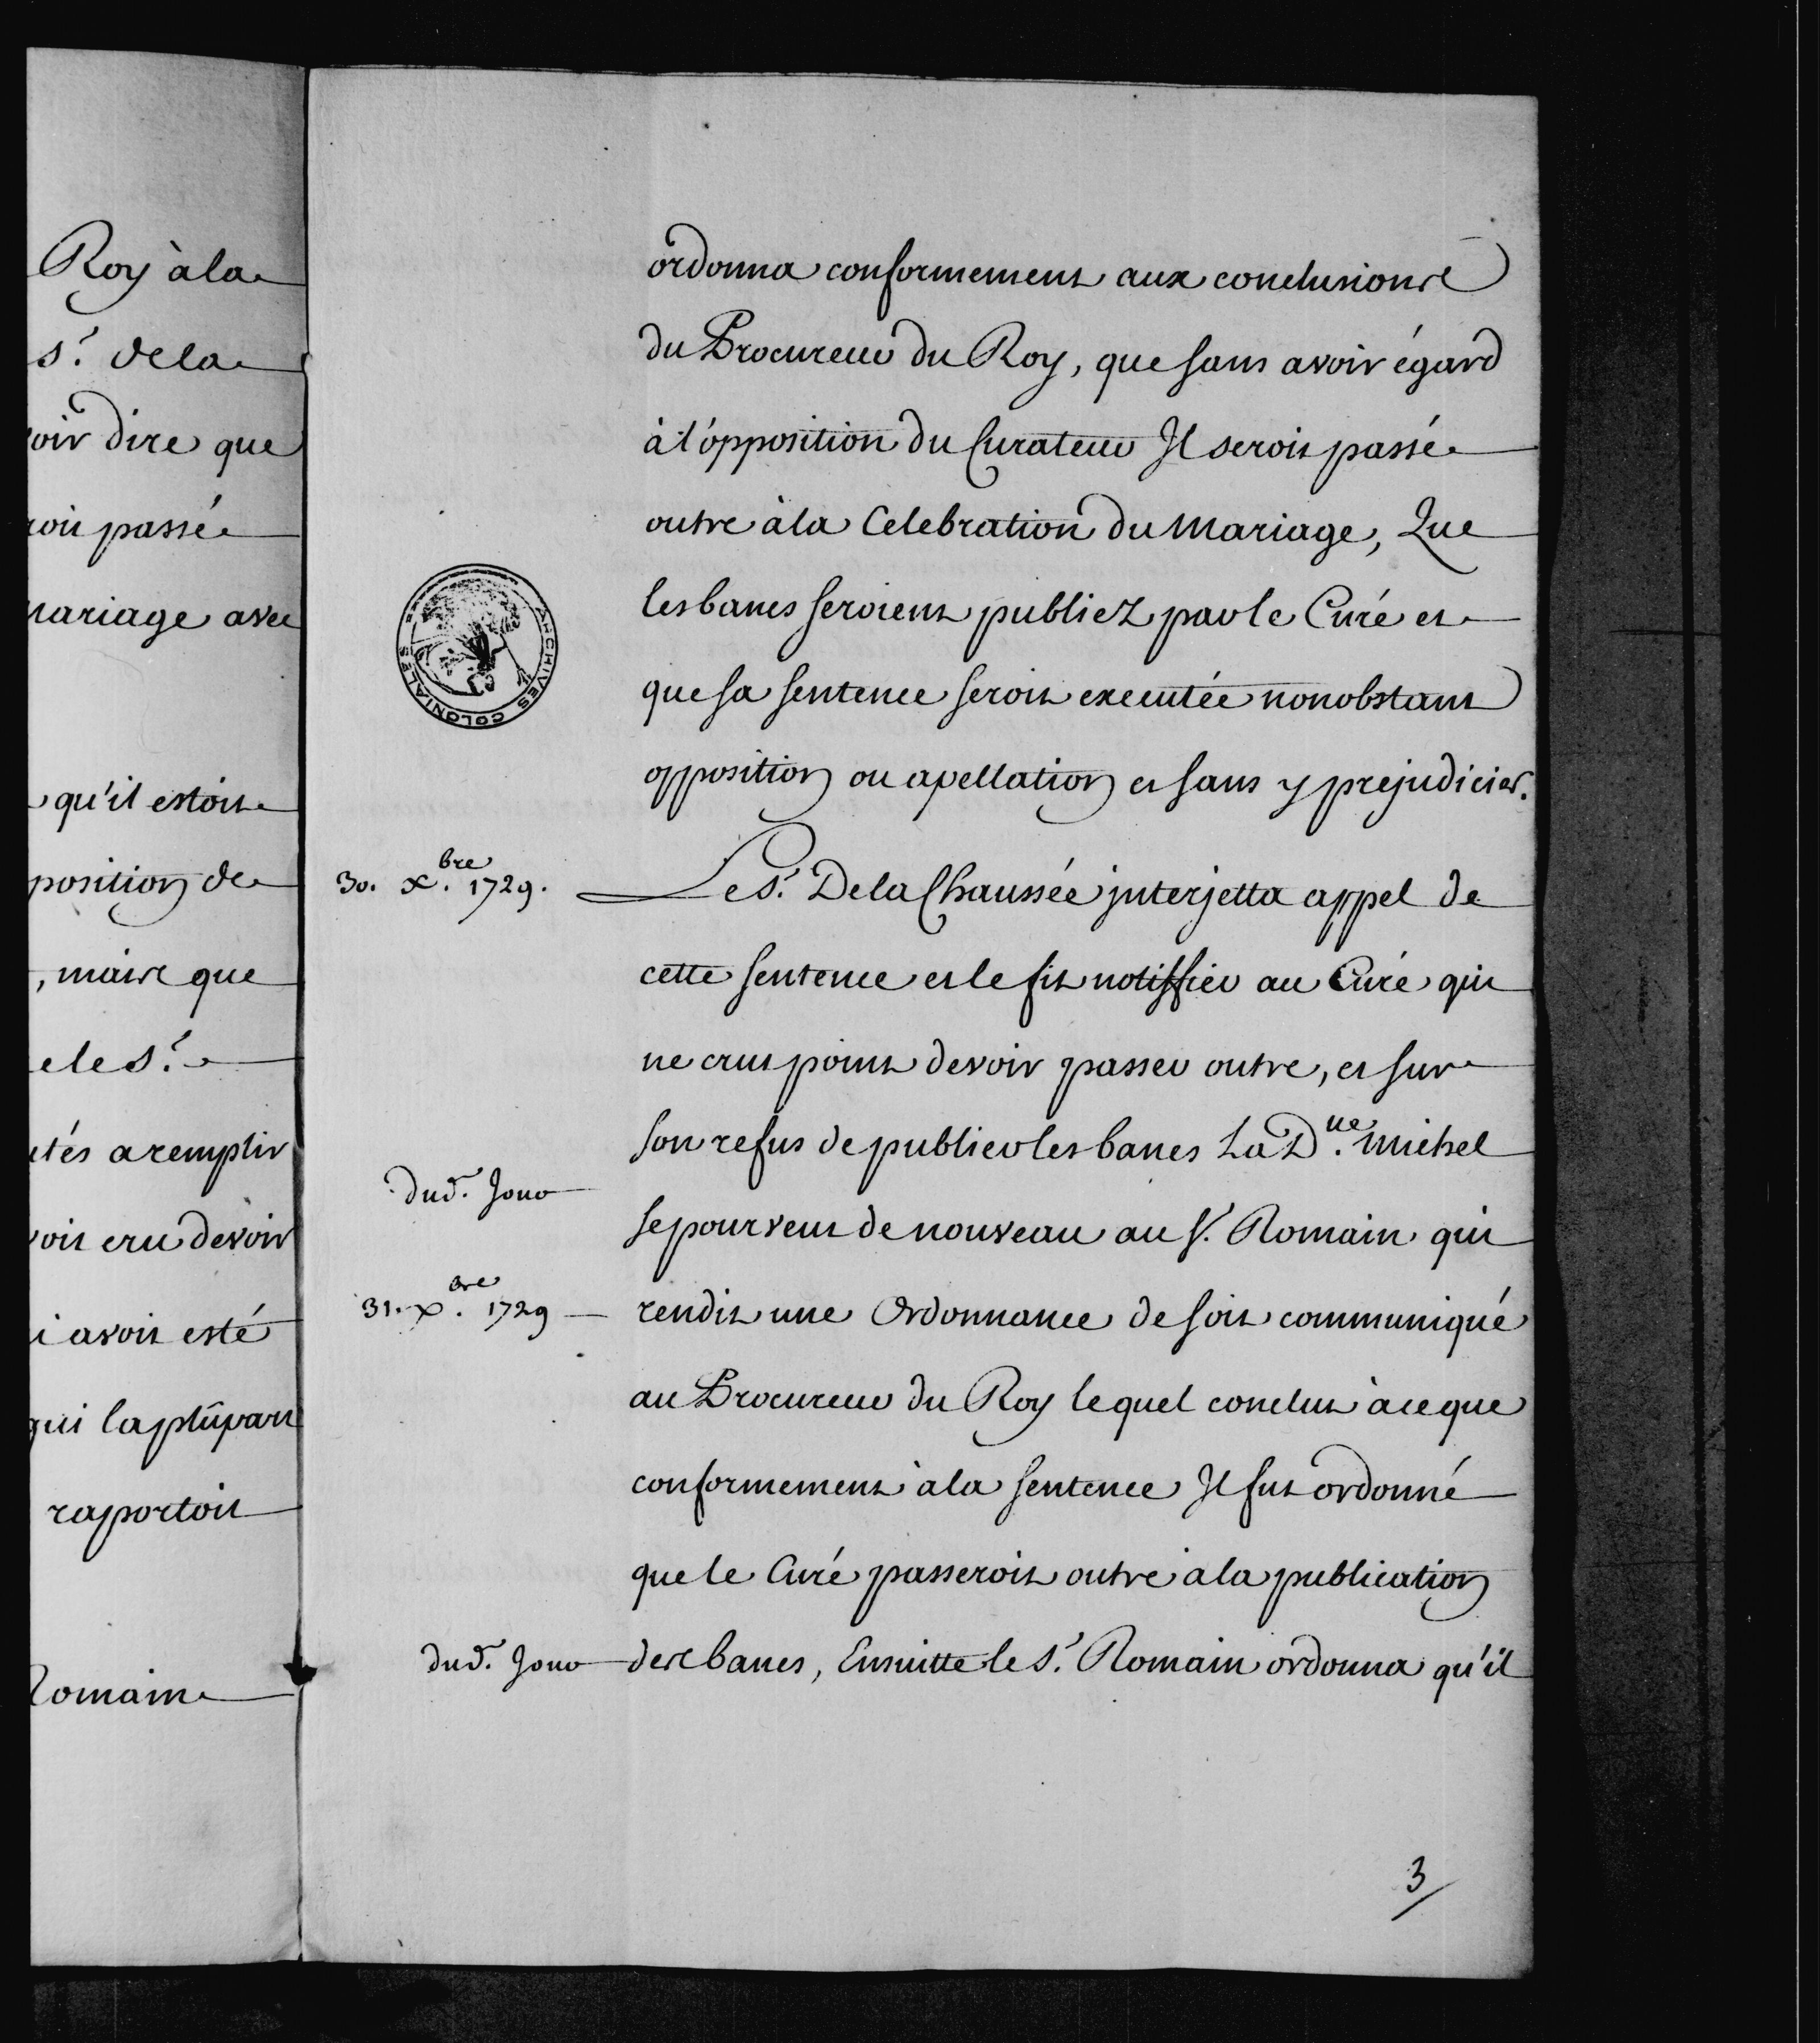 Roy à la
s.r de la
oir dire que
roit passé
mariage avec
qu'il estoit
position de
, mais que
e le S.r
etés a remplir
voit cru devoir
i avoit esté
qui la plûpart
raportoit
Romain
ordonna conformement aux conclusions
du Procureur du Roy, que sans avoir égard
à l'opposition du Curateur Il seroit passé
outre à la Celebration du Mariage, Que
les bancs seroient publiez par le Curé et
que sa sentence seroit executée nonobstant
opposition ou apellation et sans y prejudicier.
30. X.bre 1729.
Le S.r De la Chaussée interjetta appel de
cette sentence et le fit notiffier au Curé qui
ne crut point devoir passer outre, et sur
son refus de publier les bancs La D.lle Michel
dud. Jour
se pourveut de nouveau au S.r Romain qui
31. X.bre 1729
rendit une Ordonnance de soit communiqué
au Procureur du Roy lequel conclut à ce que
conformement à la sentence Il fut ordonné
que le Curé passeroit outre à la publication
dud. Jour
des bancs, Ensuitte le S.r Romain ordonna qu'il
3
ARCHIVES COLONIALES